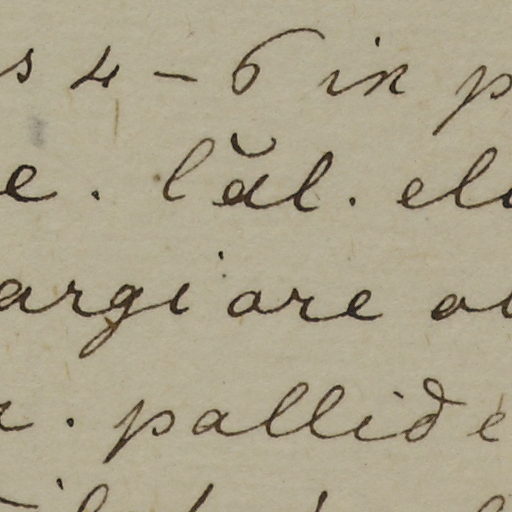 s 4 – 6 in p
e. lăl. el
argi ore o
. pallide